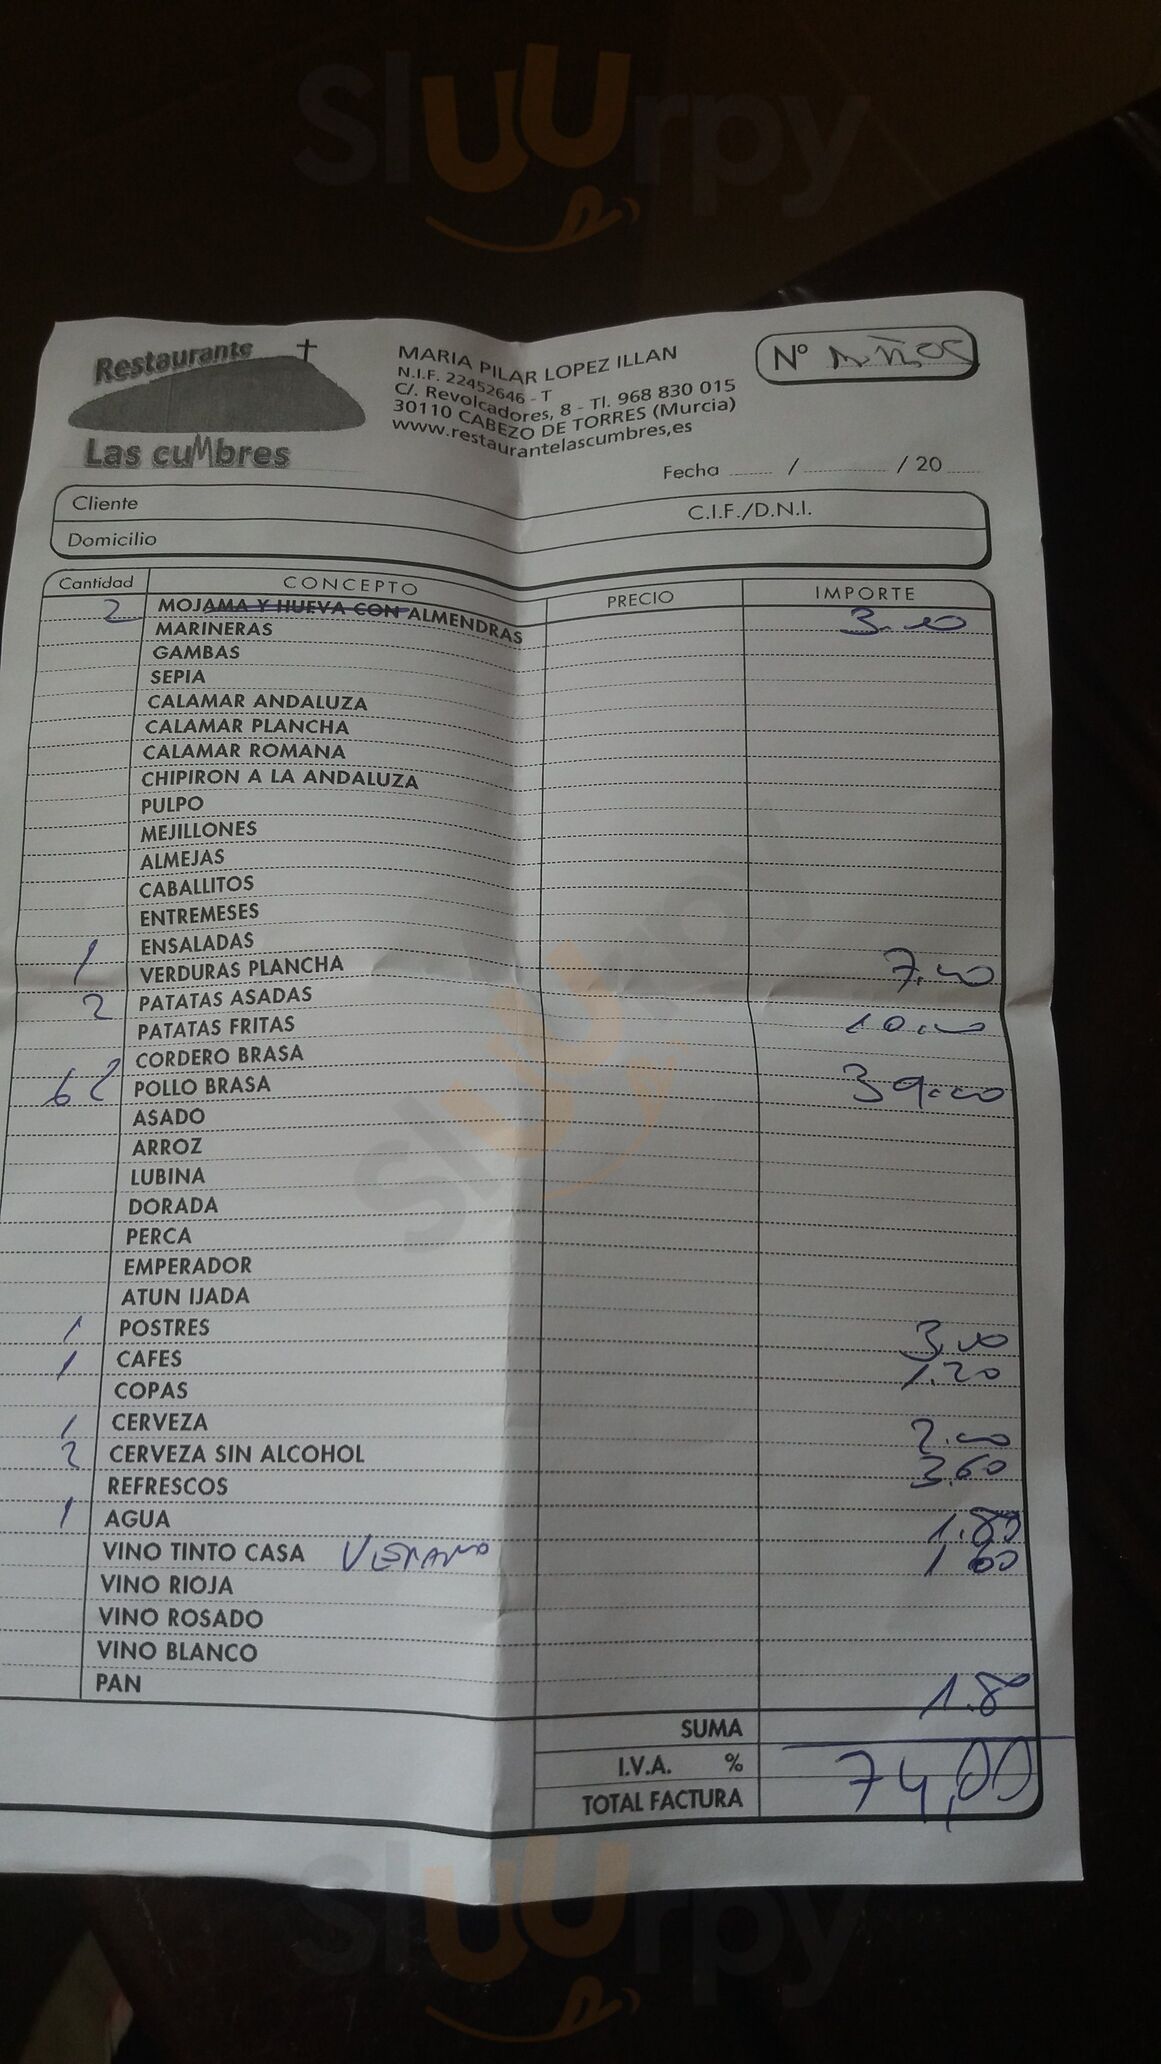 Sluurpy
Restaurante
Las cuMbres
MARIA PILAR LOPEZ ILLAN
N.I.F. 22452646 - T
C/. Revolcadores, 8 - Tl. 968 830 015
30110 CABEZO DE TORRES (Murcia)
www.restaurantelascumbres,es
Nº
Fecha ........ / ................ / 20 ......
Cliente C.I.F./D.N.I.
Domicilio
Cantidad CONCEPTO PRECIO IMPORTE
2 MOJAMA Y HUEVA CON ALMENDRAS 3.00
MARINERAS
GAMBAS
SEPIA
CALAMAR ANDALUZA
CALAMAR PLANCHA
CALAMAR ROMANA
CHIPIRON A LA ANDALUZA
PULPO
MEJILLONES
ALMEJAS
CABALLITOS
ENTREMESES
ENSALADAS
1 VERDURAS PLANCHA 7.00
2 PATATAS ASADAS
PATATAS FRITAS 10.00
CORDERO BRASA
6 2 POLLO BRASA 39.00
ASADO
ARROZ
LUBINA
DORADA
PERCA
EMPERADOR
ATUN IJADA
1 POSTRES 3.00
1 CAFES 1.20
COPAS
1 CERVEZA 2.00
2 CERVEZA SIN ALCOHOL 3.60
REFRESCOS
1 AGUA 1.80
VINO TINTO CASA VERANO 1.60
VINO RIOJA
VINO ROSADO
VINO BLANCO
PAN 1.80
SUMA
I.V.A. %
TOTAL FACTURA 74,00
Sluurpy
Sluurpy